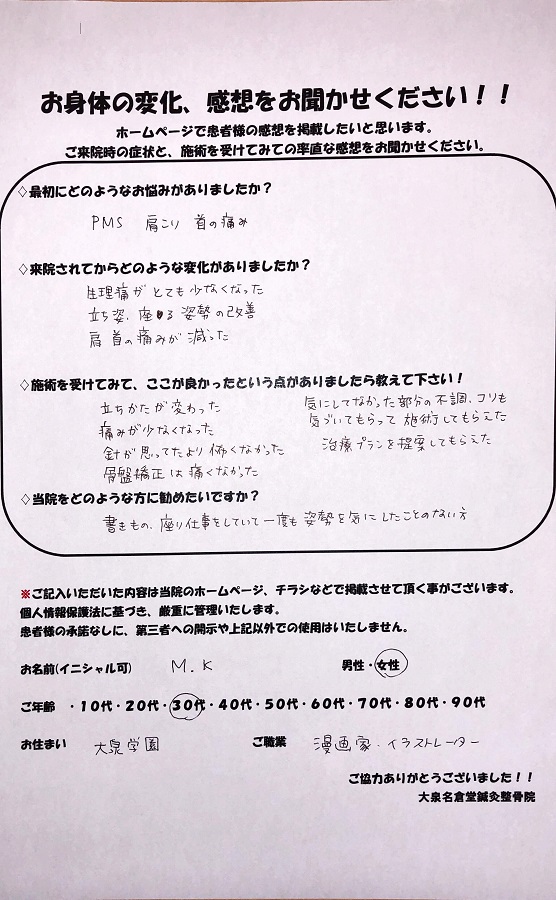 お身体の変化、感想をお聞かせください！！
ホームページで患者様の感想を掲載したいと思います。
ご来院時の症状と、施術を受けてみての率直な感想をお聞かせください。
◇最初にどのようなお悩みがありましたか？
PMS 肩こり 首の痛み
◇来院されてからどのような変化がありましたか？
生理痛が とても少なくなった
立ち姿、座る 姿勢の改善
肩 首の痛みが 減った
◇施術を受けてみて、ここが良かったという点がありましたら教えて下さい！
立ちかたが変わった
痛みが少なくなった
針が思ってたより怖くなかった
骨盤矯正は痛くなかった
気にしてなかった部分の不調、コリも
気づいてもらって施術してもらえた
治療プランを提案してもらえた
◇当院をどのような方に勧めたいですか？
書きもの、座り仕事をしていて一度も姿勢を気にしたことのない方
※ご記入いただいた内容は当院のホームページ、チラシなどで掲載させて頂く事がございます。
個人情報保護法に基づき、厳重に管理いたします。
患者様の承諾なしに、第三者への開示や上記以外での使用はいたしません。
お名前(イニシャル可) M.K 男性・女性
ご年齢 ・10代・20代・30代・40代・50代・60代・70代・80代・90代
お住まい 大泉学園 ご職業 漫画家・イラストレーター
ご協力ありがとうございました！！
大泉名倉堂鍼灸整骨院